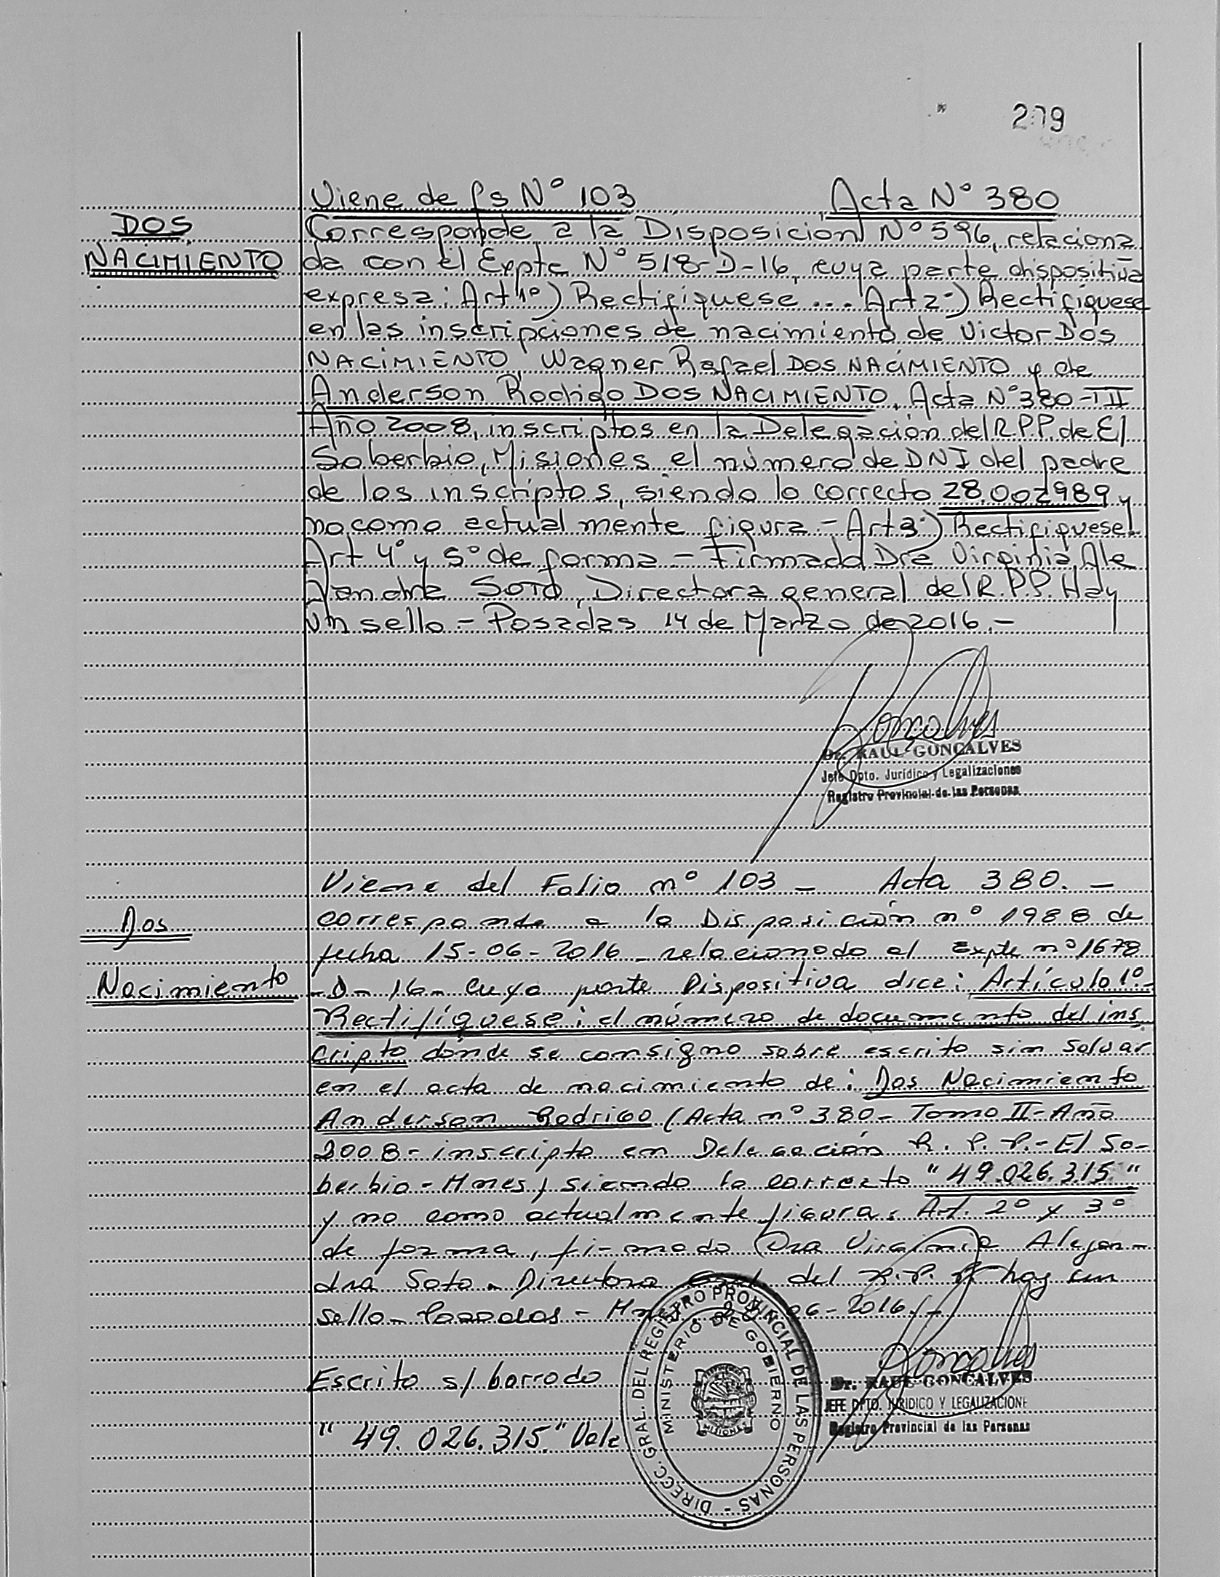 279
Viene de fs Nº 103 Acta Nº 380
DOS NACIMIENTO
Corresponde a la Disposicion Nº 596, relaciona
da con el Expte Nº 518-D-16, cuya parte dispositiva
expresa: Art 1º) Rectifiquese ... Art 2º) Rectifiquese
en las inscripciones de nacimiento de Victor DOS
NACIMIENTO, Wagner Rafael DOS NACIMIENTO y de
Anderson Rodrigo DOS NACIMIENTO, Acta Nº 380-TII
Año 2008, inscriptos en la Delegación del R.P.P. de El
Soberbio, Misiones el número de DNI del padre
de los inscriptos, siendo lo correcto 28.002989 y
no como actualmente figura - Art 3º) Rectifiquese
Art 4º y 5º de forma - Firmado Dra Virginia Ale
jandra SOTO, Directora general del R.P.P. Hay
un sello - Posadas 14 de Marzo de 2016.-
Goncalves
Dr. RAUL GONCALVES
Jefe Dpto. Jurídico y Legalizaciones
Registro Provincial de las Personas
Viene del Folio nº 103 - Acta 380. -
Dos
Nacimiento
corresponde a la Disposición nº 1988 de
fecha 15-06-2016 relacionado al Expte nº 1678
-D-16- cuya parte Dispositiva dice: Artículo 1º-
Rectifíquese: el número de documento del ins
cripto donde se consigno sobre escrito sin salvar
en el acta de nacimiento de: Dos Nacimiento
Anderson Rodrigo (Acta nº 380- Tomo II- Año
2008- inscripto en Delegación R. P. P.- El So-
berbio- Mnes, siendo lo correcto "49.026.315"
y no como actualmente figura. Art. 2º y 3º
de forma, firmado Dra Virginia Alejan-
dra Soto - Directora Gral del R.P.P. hay un
sello- Posadas - 06-2016.-
Escrito s/ borrado
"49.026.315" Vale
DIRECC. GRAL. DEL REGISTRO PROVINCIAL DE LAS PERSONAS -
MINISTERIO DE GOBIERNO
MISIONES
Goncalves
Dr. RAUL GONCALVES
JEFE DPTO. JURIDICO Y LEGALIZACIONE
Registro Provincial de las Personas